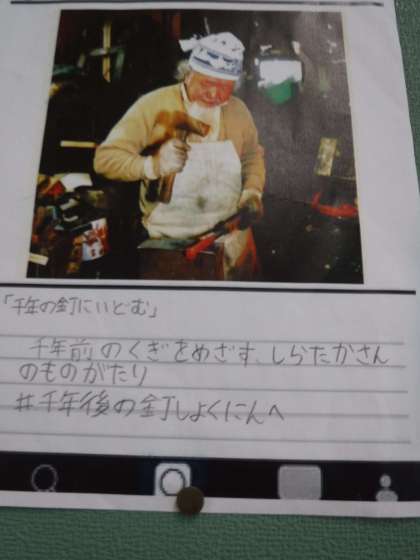 「千年の釘にいどむ」
千年前のくぎをめざす、しらたかさん
のものがたり
#千年後の釘しょくにんへ